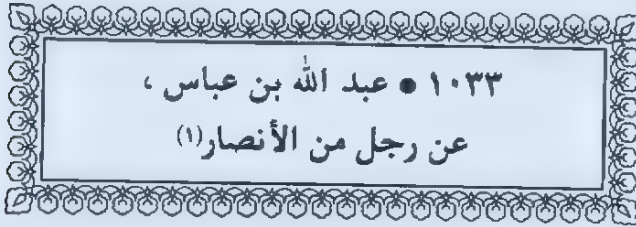 ١٠٣٣ • عبد الله بن عباس ،
عن رجل من الأنصار(١)